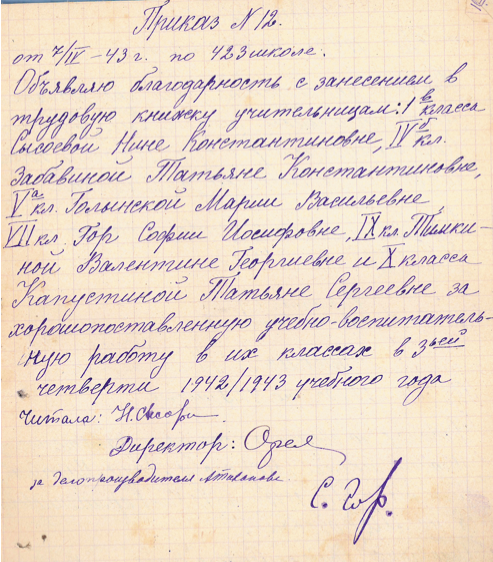 Приказ N 12.
от 7/IV – 43 г. по 423 школе.
Объявляю благодарность с занесением в
трудовую книжку учительницам: 1 в класса
Сысоевой Нине Константиновне, IV б кл.
Забавиной Татьяне Константиновне,
V а кл. Голынской Марии Васильевне,
VII кл. Гор Софии Иосифовне, IX кл. Тимки-
ной Валентине Георгиевне и X класса
Капустиной Татьяне Сергеевне за
хорошопоставленную учебно-воспитатель-
ную работу в их классах в 3ьей
четверти 1942/1943 учебного года
Читала: Н.
Директор:
за делопроизводителя
С. Гор.